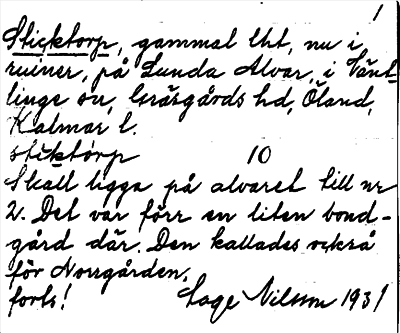 1
Sticktorp, gammal lht, nu i
ruiner, på Lunda Alvar, i Vänt-
linge sn, Gräsgårds hd, Öland,
Kalmar l.
stiktorp 10
Skall ligga på alvaret till nr
2. Det var förr en liten bond-
gård där. Den kallades också
för Norrgården.
forts! Sage Nilsson 1931